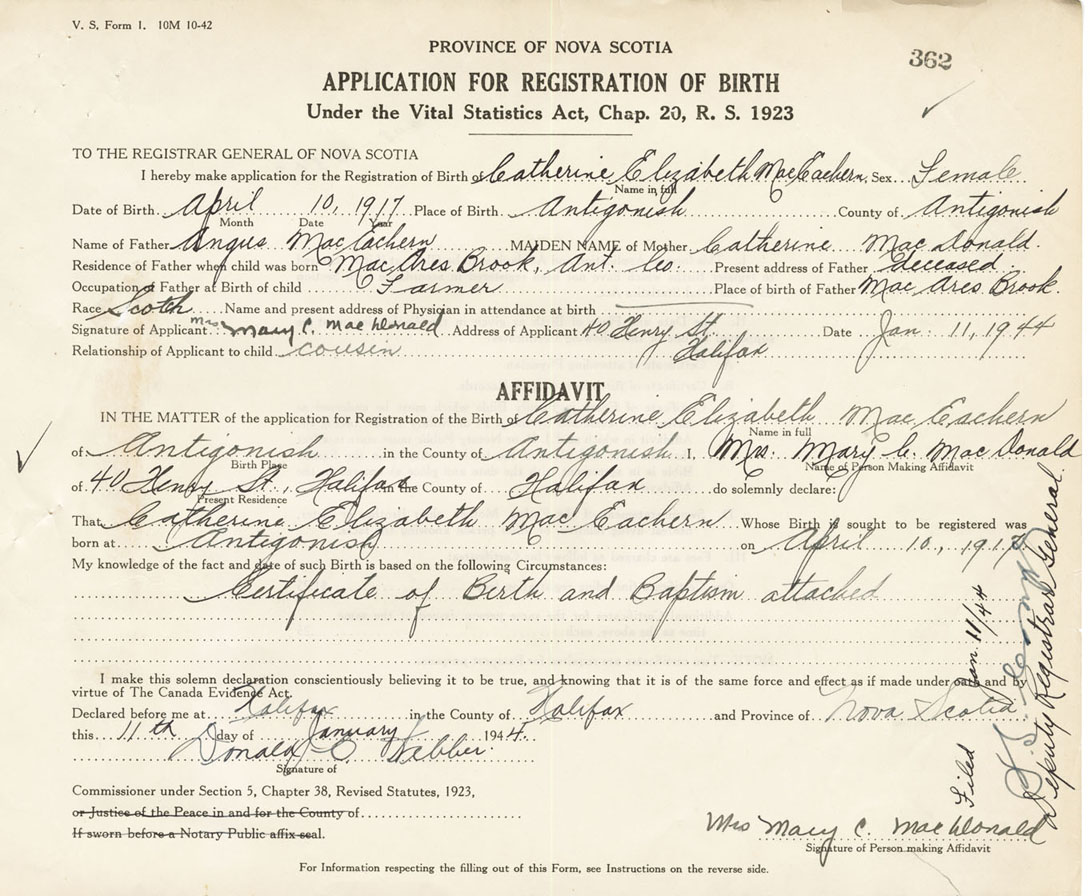 V. S. Form 1. 10M 10-42
PROVINCE OF NOVA SCOTIA
362
APPLICATION FOR REGISTRATION OF BIRTH
Under the Vital Statistics Act, Chap. 20, R. S. 1923
TO THE REGISTRAR GENERAL OF NOVA SCOTIA
I hereby make application for the Registration of Birth of Catherine Elizabeth MacEachern Sex Female
Name in full
Date of Birth April 10, 1917 Place of Birth Antigonish County of Antigonish
Month Date Year
Name of Father Angus MacEachern MAIDEN NAME of Mother Catherine MacDonald.
Residence of Father when child was born MacAres Brook, Ant. Co. Present address of Father deceased.
Occupation of Father at Birth of child Farmer Place of birth of Father MacAres Brook.
Race Scoth Name and present address of Physician in attendance at birth
Signature of Applicant Mrs Mary C. MacDonald Address of Applicant 40 Henry St. Date Jan. 11, 1944
Relationship of Applicant to child cousin Halifax
AFFIDAVIT
IN THE MATTER of the application for Registration of the Birth of Catherine Elizabeth MacEachern
Name in full
of Antigonish in the County of Antigonish I, Mrs. Mary C. MacDonald
Birth Place Name of Person Making Affidavit
of 40 Henry St., Halifax in the County of Halifax do solemnly declare:
Present Residence
That Catherine Elizabeth MacEachern Whose Birth is sought to be registered was
born at Antigonish on April 10, 1917
My knowledge of the fact and date of such Birth is based on the following Circumstances:
Certificate of Birth and Baptism attached
I make this solemn declaration conscientiously believing it to be true, and knowing that it is of the same force and effect as if made under oath and by
virtue of The Canada Evidence Act.
Declared before me at Halifax in the County of Halifax and Province of Nova Scotia
this 11th day of January 1944.
Donald C Webber
Signature of
Commissioner under Section 5, Chapter 38, Revised Statutes, 1923,
or Justice of the Peace in and for the County of
If sworn before a Notary Public affix seal.
Mrs Mary C. MacDonald
Signature of Person making Affidavit
For Information respecting the filling out of this Form, see Instructions on the reverse side.
Filed Jan. 11/44
Deputy Registrar General